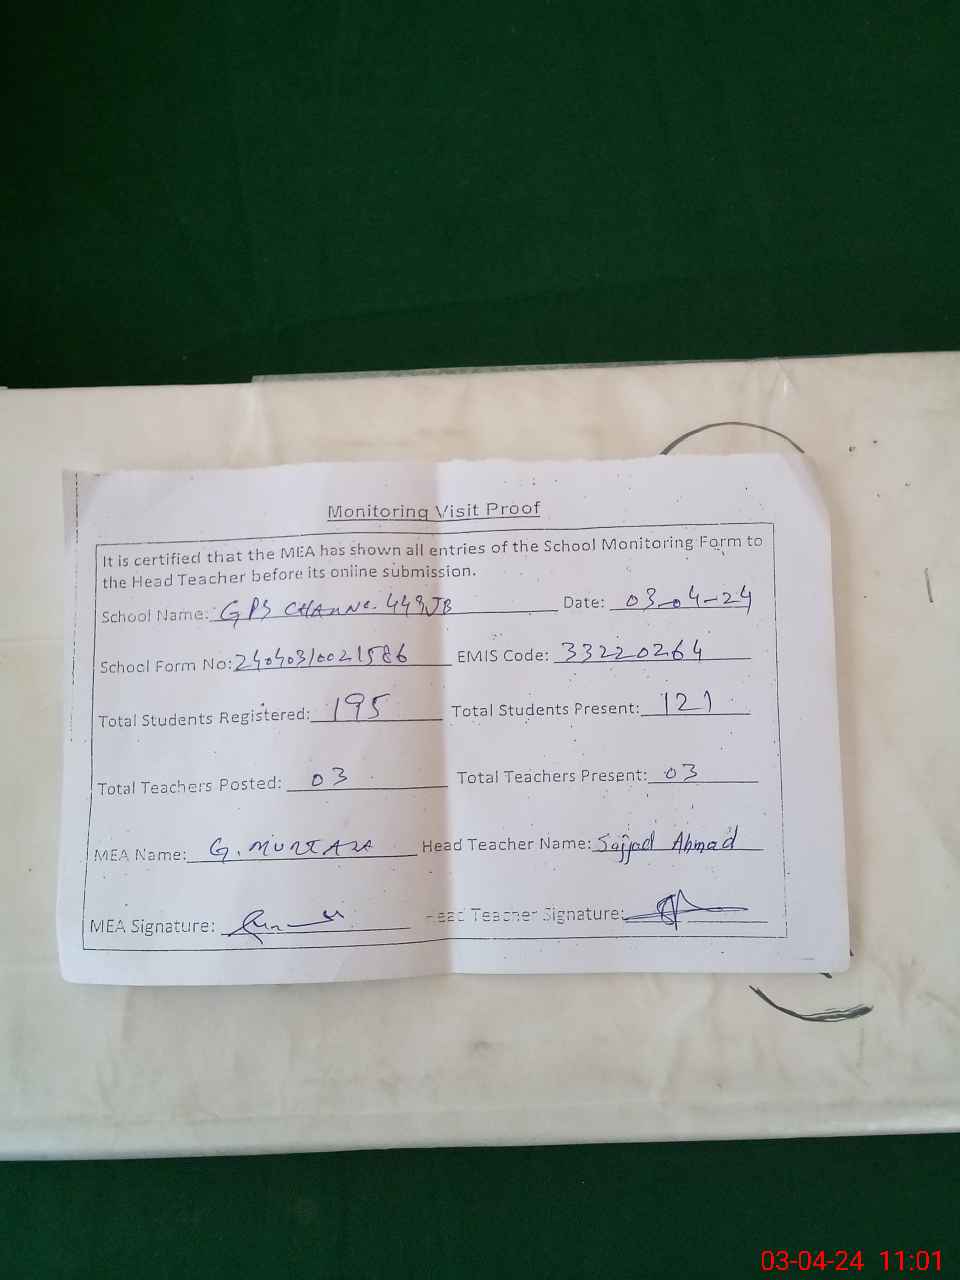 Monitoring Visit Proof
It is certified that the MEA has shown all entries of the School Monitoring Form to
the Head Teacher before its online submission.
School Name: GPS CHANNC. 449JB Date: 03-04-24
School Form No: 24040310021586 EMIS Code: 33220264
Total Students Registered: 195 Total Students Present: 121
Total Teachers Posted: 03 Total Teachers Present: 03
MEA Name: G. MURTAZA Head Teacher Name: Sajjad Ahmad
MEA Signature: Head Teacher Signature:
03-04-24 11:01